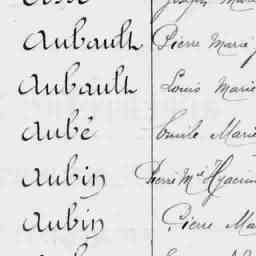 Aubault Pierre Marie
Aubault Louis Marie
Aubé Emile Marie
Aubin Pierre M.ie Hyacin
Aubin Pierre Ma